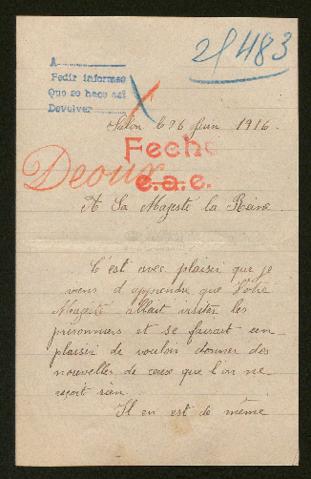 21483
A
Pedir informes
Que se hace así
Devolver
Salon le 26 Juin 1916.
Fecha
e.a.e.
A Sa Majesté la Reine
C'est avec plaisir que je
viens d'apprendre que Votre
Majesté allait visiter les
prisonniers et se faisait un
plaisir de vouloir donner des
nouvelles de ceux que l'on ne
reçoit rien.
Il en est de même